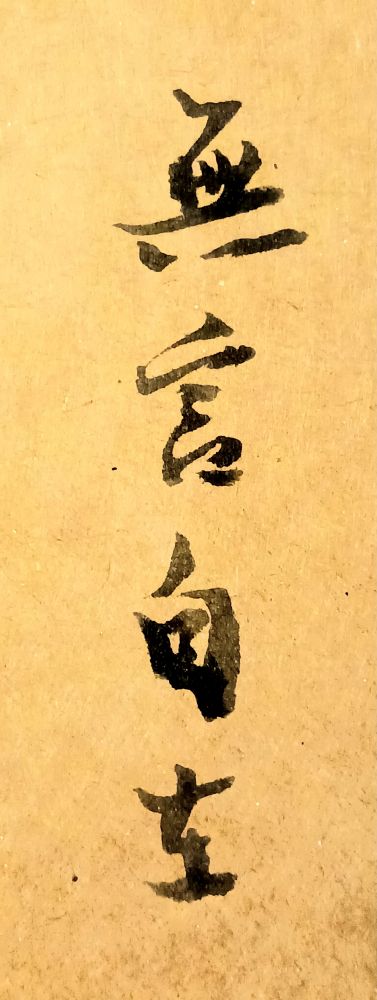 無言自在